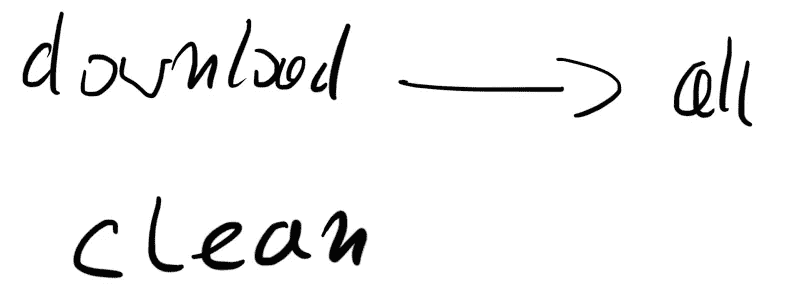 download → all
clean